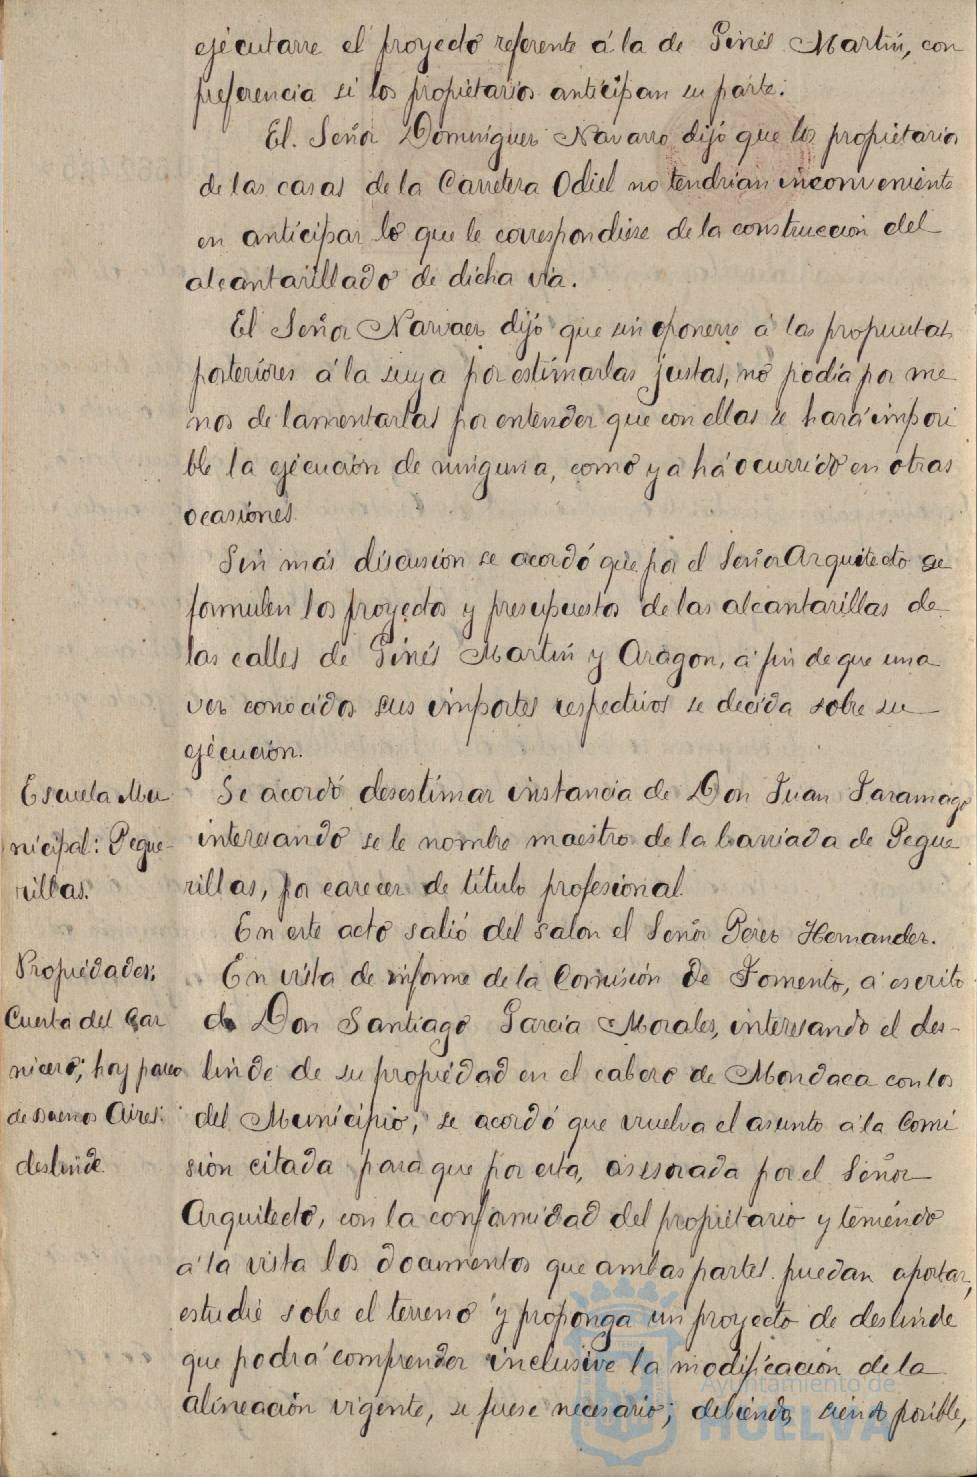 ejecutarse el proyecto referente á la de Ginés Martín, con
preferencia si los propietarios anticipan su parte.
El Señor Dominguez Navarro dijó que los propietarios
de las casas de la Carretera Odiel no tendrian inconveniente
en anticipar lo que le correspondiese de la construccion del
alcantarillado de dicha via.
El Señor Narvaez dijó que sin oponerse á las propuestas
posteriores á la suya por estimarlas justas, no podia por me
nos de lamentarlas por entender que con ellas se hará imposi
ble la ejecución de ninguna, como ya há ocurrido en otras
ocasiones.
Sin más discusión se acordó que por el Señor Arquitecto se
formulen los proyectos y presupuestos de las alcantarillas de
las calles de Ginés Martín y Aragon, á fin de que una
vez conocidos sus importes respectivos se decida sobre su
ejecución.
Escuela Mu
nicipal: Pegue-
rillas.
Se acordó desestimar instancia de Don Juan Jaramago
interesando se le nombre maestro de la barriada de Pegue
rillas, por carecer de título profesional.
En este acto salió del salon el Señor Perez Hernandez.
Propiedades:
Cuesta del Car
nicero; hoy paseo
de Buenos Aires:
deslinde.
En vista de informe de la Comisión de Fomento, á escrito
de Don Santiago Garcia Morales, interesando el des-
linde de su propiedad en el cabezo de Mondaca con los
del Municipio, se acordó que vuelva el asunto á la Comi
sión citada para que por esta, asesorada por el Señor
Arquitecto, con la conformidad del propietario y teniendo
á la vista los documentos que ambas partes puedan aportar,
estudie sobre el terreno y proponga un proyecto de deslinde
que podrá comprender inclusive la modificación de la
alineación vigente, si fuese necesario; debiendo, siendo posible,
Ayuntamiento de
HUELVA